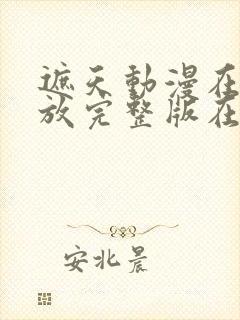 遮天動漫在
放完整版在
安北晨